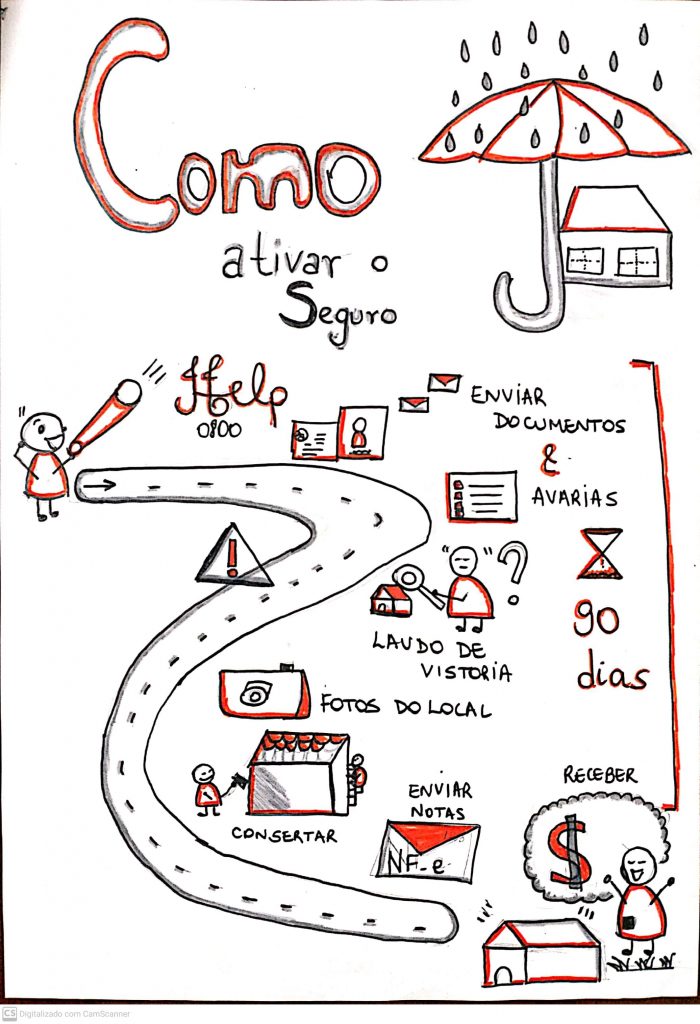 Como
ativar o
Seguro
Help
0800
ENVIAR
DOCUMENTOS
&
AVARIAS
!
?
90
dias
LAUDO DE
VISTORIA
FOTOS DO LOCAL
CONSERTAR
ENVIAR
NOTAS
NF-e
RECEBER
$
CS Digitalizado com CamScanner